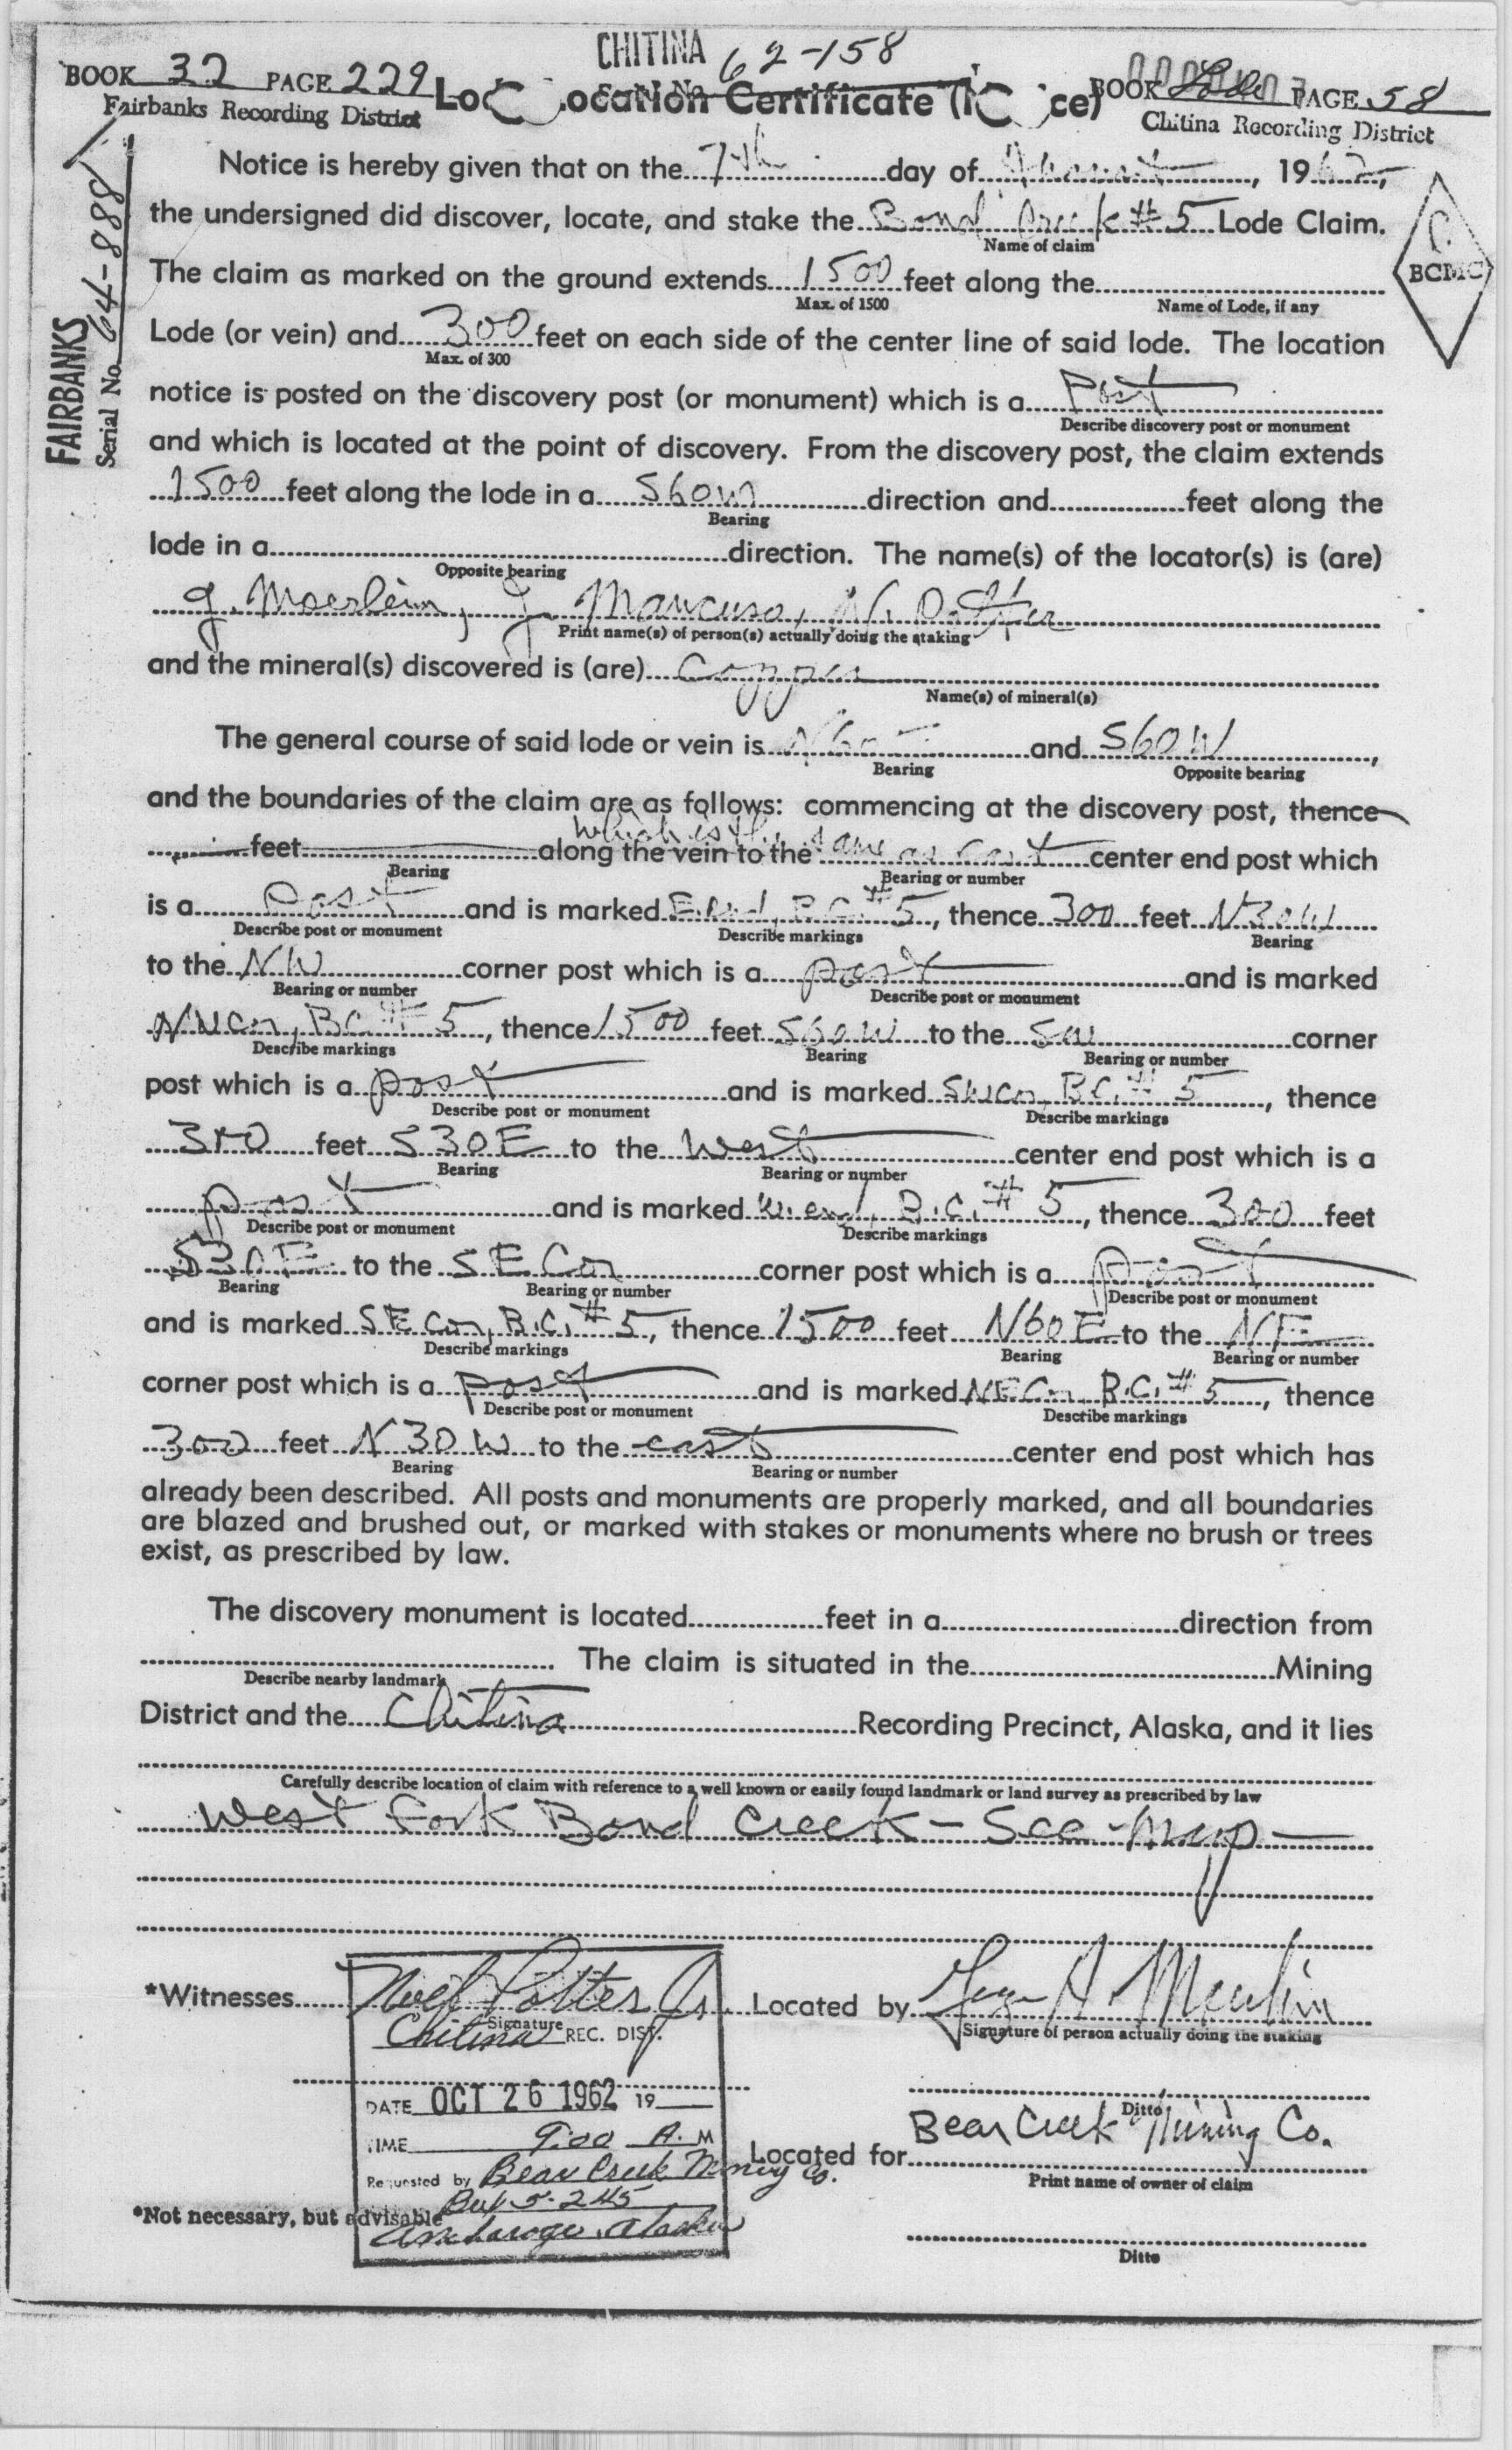 CHITINA 62-158
BOOK 32 PAGE 229
Fairbanks Recording District
Location Certificate
BOOK Lode PAGE 58
Chitina Recording District
FAIRBANKS
Serial No. 64-888
BCMC
Notice is hereby given that on the 7th day of August, 1962,
the undersigned did discover, locate, and stake the Bond Creek #5 Lode Claim.
Name of claim
The claim as marked on the ground extends 1500 feet along the
Max. of 1500 Name of Lode, if any
Lode (or vein) and 300 feet on each side of the center line of said lode. The location
Max. of 300
notice is posted on the discovery post (or monument) which is a Post
Describe discovery post or monument
and which is located at the point of discovery. From the discovery post, the claim extends
1500 feet along the lode in a S60W direction and feet along the
Bearing
lode in a direction. The name(s) of the locator(s) is (are)
Opposite bearing
G. Moerlein, J. Mancuso, N. Potter
Print name(s) of person(s) actually doing the staking
and the mineral(s) discovered is (are) Copper
Name(s) of mineral(s)
The general course of said lode or vein is N60E and S60W,
Bearing Opposite bearing
and the boundaries of the claim are as follows: commencing at the discovery post, thence
which is the
feet along the vein to the same as East center end post which
Bearing Bearing or number
is a post and is marked E. end, B.C. #5, thence 300 feet N30W
Describe post or monument Describe markings Bearing
to the NW corner post which is a post and is marked
Bearing or number Describe post or monument
NW Cor, B.C. #5, thence 1500 feet S60W to the SW corner
Describe markings Bearing Bearing or number
post which is a post and is marked SW Cor, B.C. #5, thence
Describe post or monument Describe markings
300 feet S30E to the West center end post which is a
Bearing Bearing or number
post and is marked W. end, B.C. #5, thence 300 feet
Describe post or monument Describe markings
S30E to the SE Cor corner post which is a post
Bearing Bearing or number Describe post or monument
and is marked SE Cor, B.C. #5, thence 1500 feet N60E to the NE
Describe markings Bearing Bearing or number
corner post which is a post and is marked NE Cor, B.C. #5, thence
Describe post or monument Describe markings
300 feet N30W to the east center end post which has
Bearing Bearing or number
already been described. All posts and monuments are properly marked, and all boundaries
are blazed and brushed out, or marked with stakes or monuments where no brush or trees
exist, as prescribed by law.
The discovery monument is located feet in a direction from
The claim is situated in the Mining
Describe nearby landmark
District and the Chitina Recording Precinct, Alaska, and it lies
Carefully describe location of claim with reference to a well known or easily found landmark or land survey as prescribed by law
West Fork Bond Creek - See Map
*Witnesses Noel Potter Jr. Located by George A. Moerlein
Signature Signature of person actually doing the staking
Chitina REC. DIST.
DATE OCT 26 1962 19
Ditto
TIME 9:00 A. M
Located for Bear Creek Mining Co.
Requested by Bear Creek Mining Co.
Print name of owner of claim
Box 5-245
*Not necessary, but advisable
Anchorage, Alaska
Ditto